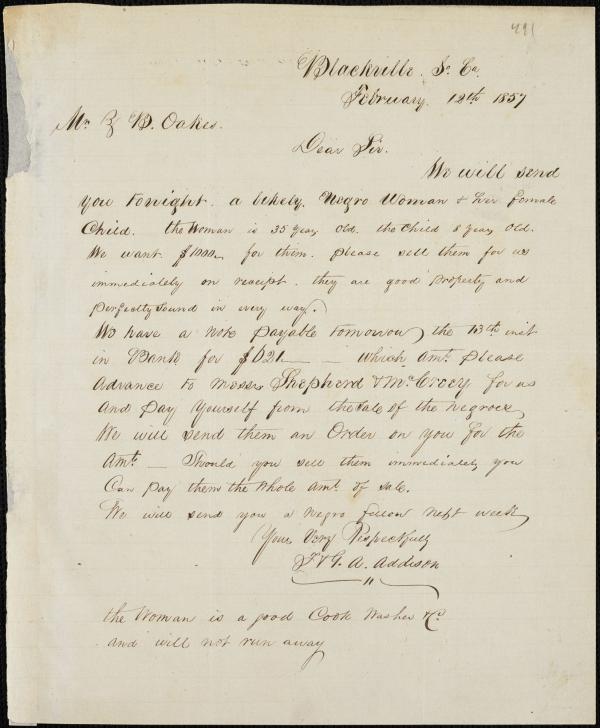 491
Blackville. So Ca.
February. 12th 1857
Mr Z B. Oakes.
Dear Sir.
We will send
you tonight. a likely. Negro Woman & her female
Child. the Woman is 35 years old. the Child 8 years old.
We want $1000 for them. please sell them for us
immediately on receipt. they are good property and
perfectly sound in every way.
We have a note payable tomorrow, the 13th inst
in Bank for $621 — which amt. please
Advance to messrs Shepherd & McCreey for us
and pay yourself from the sale of the negroes,
We will send them an Order on you for the
Amt — Should you sell them immediately you
Can pay them the Whole amt. of sale.
We will send you a negro fellow next week
Yours Very Respectfully
J & G. A. Addison
the Woman is a good Cook Washer &c
and will not run away